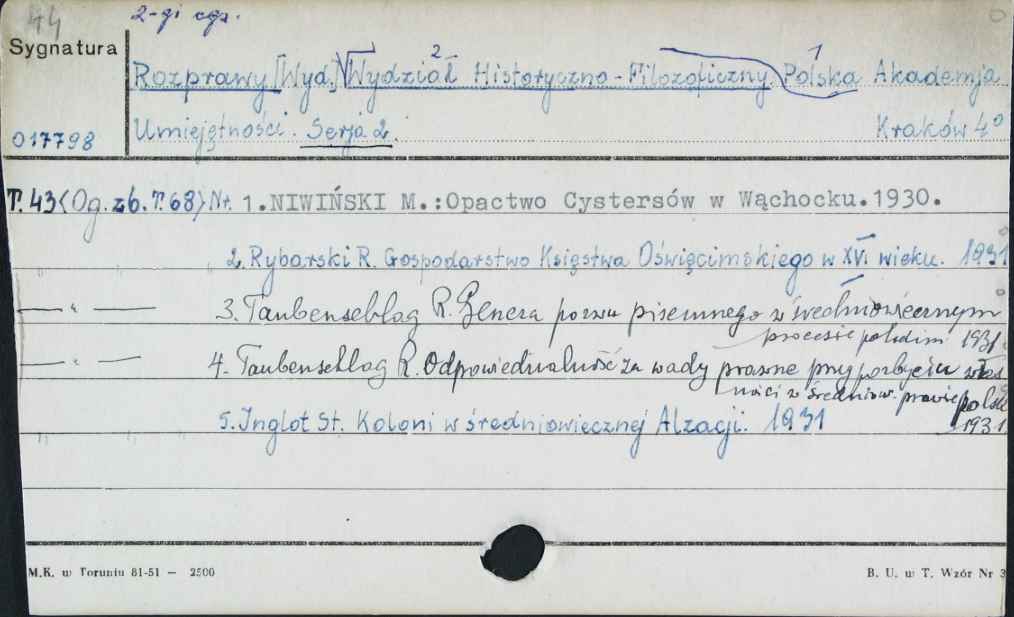 44 2-gi egz.
Sygnatura
2 1
Rozprawy [Wyd.] Wydział Historyczno-Filozoficzny. Polska Akademja
017798 Umiejętności. Serja 2. Kraków 4°
T. 43 (Og. zb. T. 68) Nr. 1. NIWIŃSKI M.:Opactwo Cystersów w Wąchocku. 1930.
" " " 2. Rybarski R. Gospodarstwo Księstwa Oświęcimskiego w XVI wieku. 1931
— " — 3. Taubenschlag R. Geneza pozwu pisemnego w średniowiecznym
procesie polskim 1931
— " — 4. Taubenschlag R. Odpowiedzialność za wady prawne przy pozbyciu włas
ności w średniow. prawie polsk
1931
" " " 5. Inglot St. Koloni w średniowiecznej Alzacji. 1931
M.K. w Toruniu 81-51 — 2500 B. U. w T. Wzór Nr 3